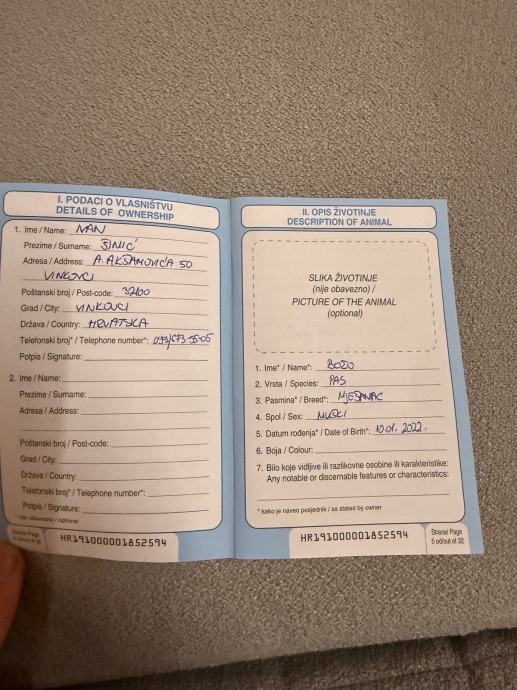 I. PODACI O VLASNIŠTVU
DETAILS OF OWNERSHIP
1. Ime / Name: IVAN
Prezime / Surname:
Adresa / Address: A. AKŠAMOVIĆA 50
VINKOVCI
Poštanski broj / Post-code: 32100
Grad / City: VINKOVCI
Država / Country: HRVATSKA
Telefonski broj* / Telephone number*:
Potpis / Signature:
2. Ime / Name:
Prezime / Surname:
Adresa / Address:
Poštanski broj / Post-code:
Grad / City:
Država / Country:
Telefonski broj* / Telephone number*:
Potpis / Signature:
* nije obavezno / optional
HR191000001852594
II. OPIS ŽIVOTINJE
DESCRIPTION OF ANIMAL
SLIKA ŽIVOTINJE
(nije obavezno) /
PICTURE OF THE ANIMAL
(optional)
1. Ime* / Name*:
2. Vrsta / Species: PAS
3. Pasmina* / Breed*: MJEŠANAC
4. Spol / Sex: MUŠKI
5. Datum rođenja* / Date of Birth*: 10.01.2022.
6. Boja / Colour:
7. Bilo koje vidljive ili razlikovne osobine ili karakteristike:
Any notable or discernable features or characteristics:
* kako je naveo posjednik / as stated by owner
HR191000001852594
Strana/ Page
5 od/out of 32